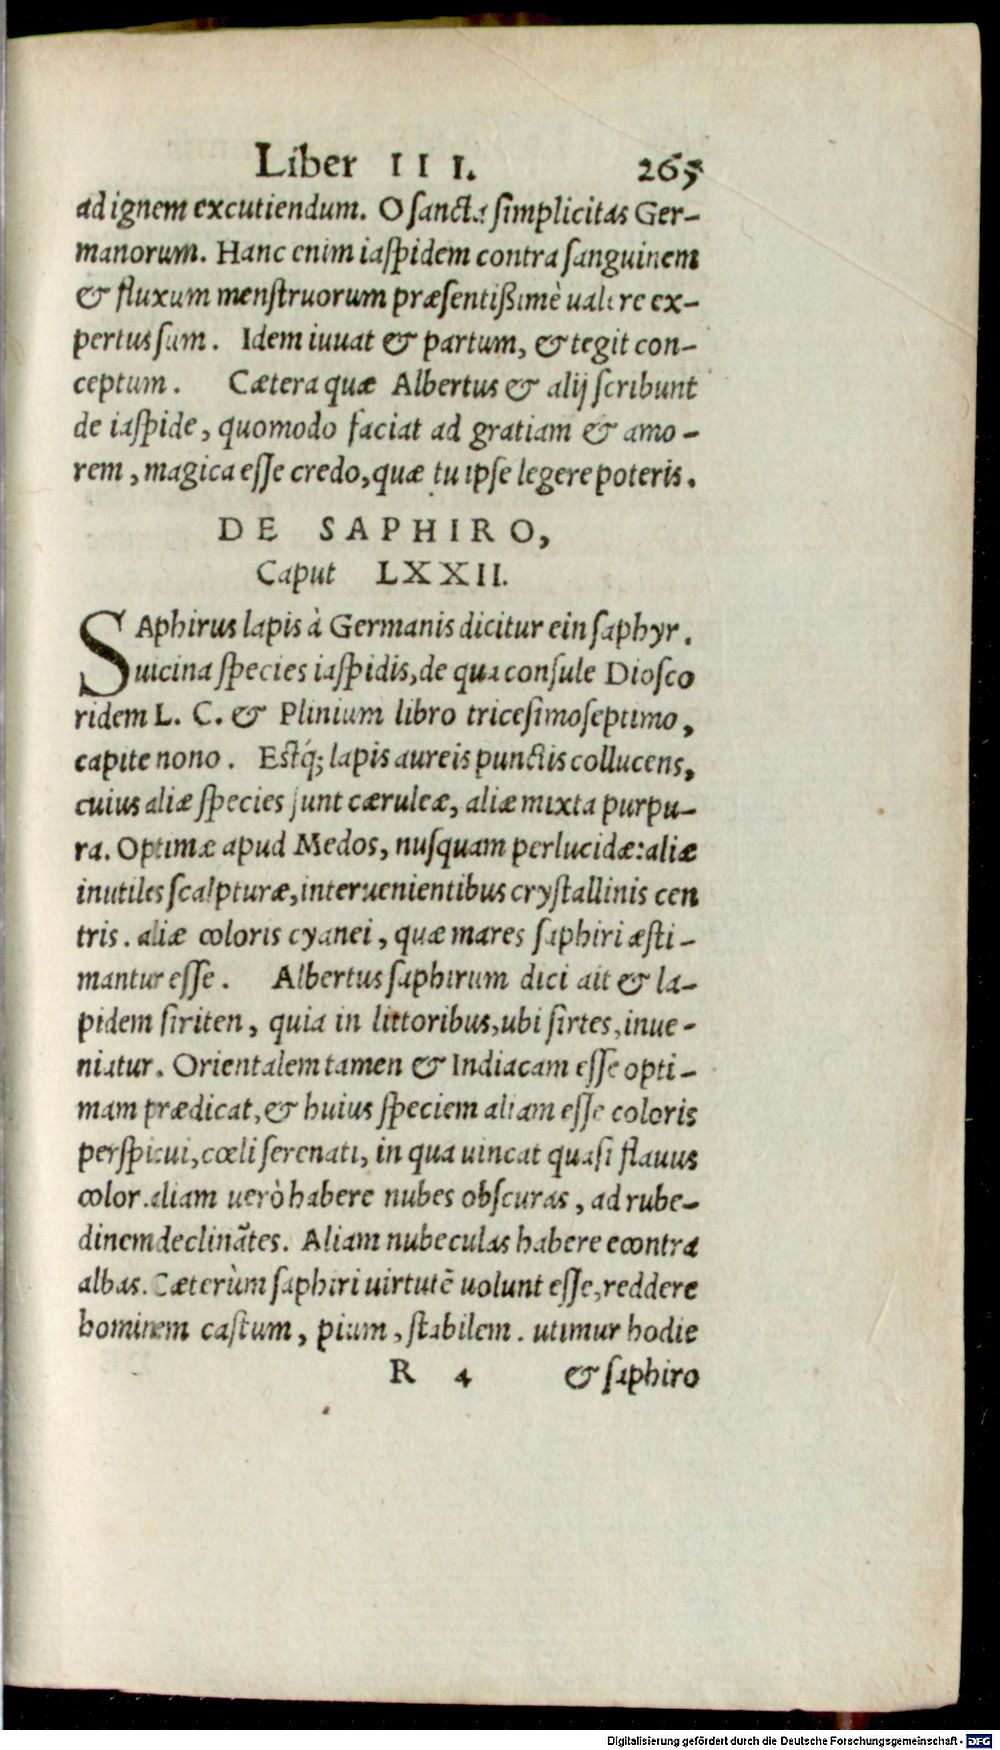 Liber III. 265
ad ignem excutiendum. O sancta simplicitas Ger-
manorum. Hanc enim iaspidem contra sanguinem
& fluxum menstruorum præsentißimè ualere ex-
pertus sum. Idem iuuat & partum, & tegit con-
ceptum. Cætera quæ Albertus & alij scribunt
de iaspide, quomodo faciat ad gratiam & amo-
rem, magica esse credo, quæ tu ipse legere poteris.
DE SAPHIRO,
Caput LXXII.
SAphirus lapis à Germanis dicitur ein saphyr.
uicina species iaspidis, de qua consule Diosco
ridem L. C. & Plinium libro tricesimoseptimo,
capite nono. Estq́; lapis aureis punctis collucens,
cuius aliæ species sunt cæruleæ, aliæ mixta purpu-
ra. Optimæ apud Medos, nusquam perlucidæ: aliæ
inutiles scalpturæ, interuenientibus crystallinis cen
tris. aliæ coloris cyanei, quæ mares saphiri æsti-
mantur esse. Albertus saphirum dici ait & la-
pidem siriten, quia in littoribus, ubi sirtes, inue-
niatur. Orientalem tamen & Indiacam esse opti-
mam prædicat, & huius speciem aliam esse coloris
perspicui, cœli serenati, in qua uincat quasi flauus
color. aliam uerò habere nubes obscuras, ad rube-
dinem declinãtes. Aliam nubeculas habere econtra
albas. Cæterùm saphiri uirtutẽ uolunt esse, reddere
hominem castum, pium, stabilem. utimur hodie
R 4 & saphiro
Digitalisierung gefördert durch die Deutsche Forschungsgemeinschaft - DFG